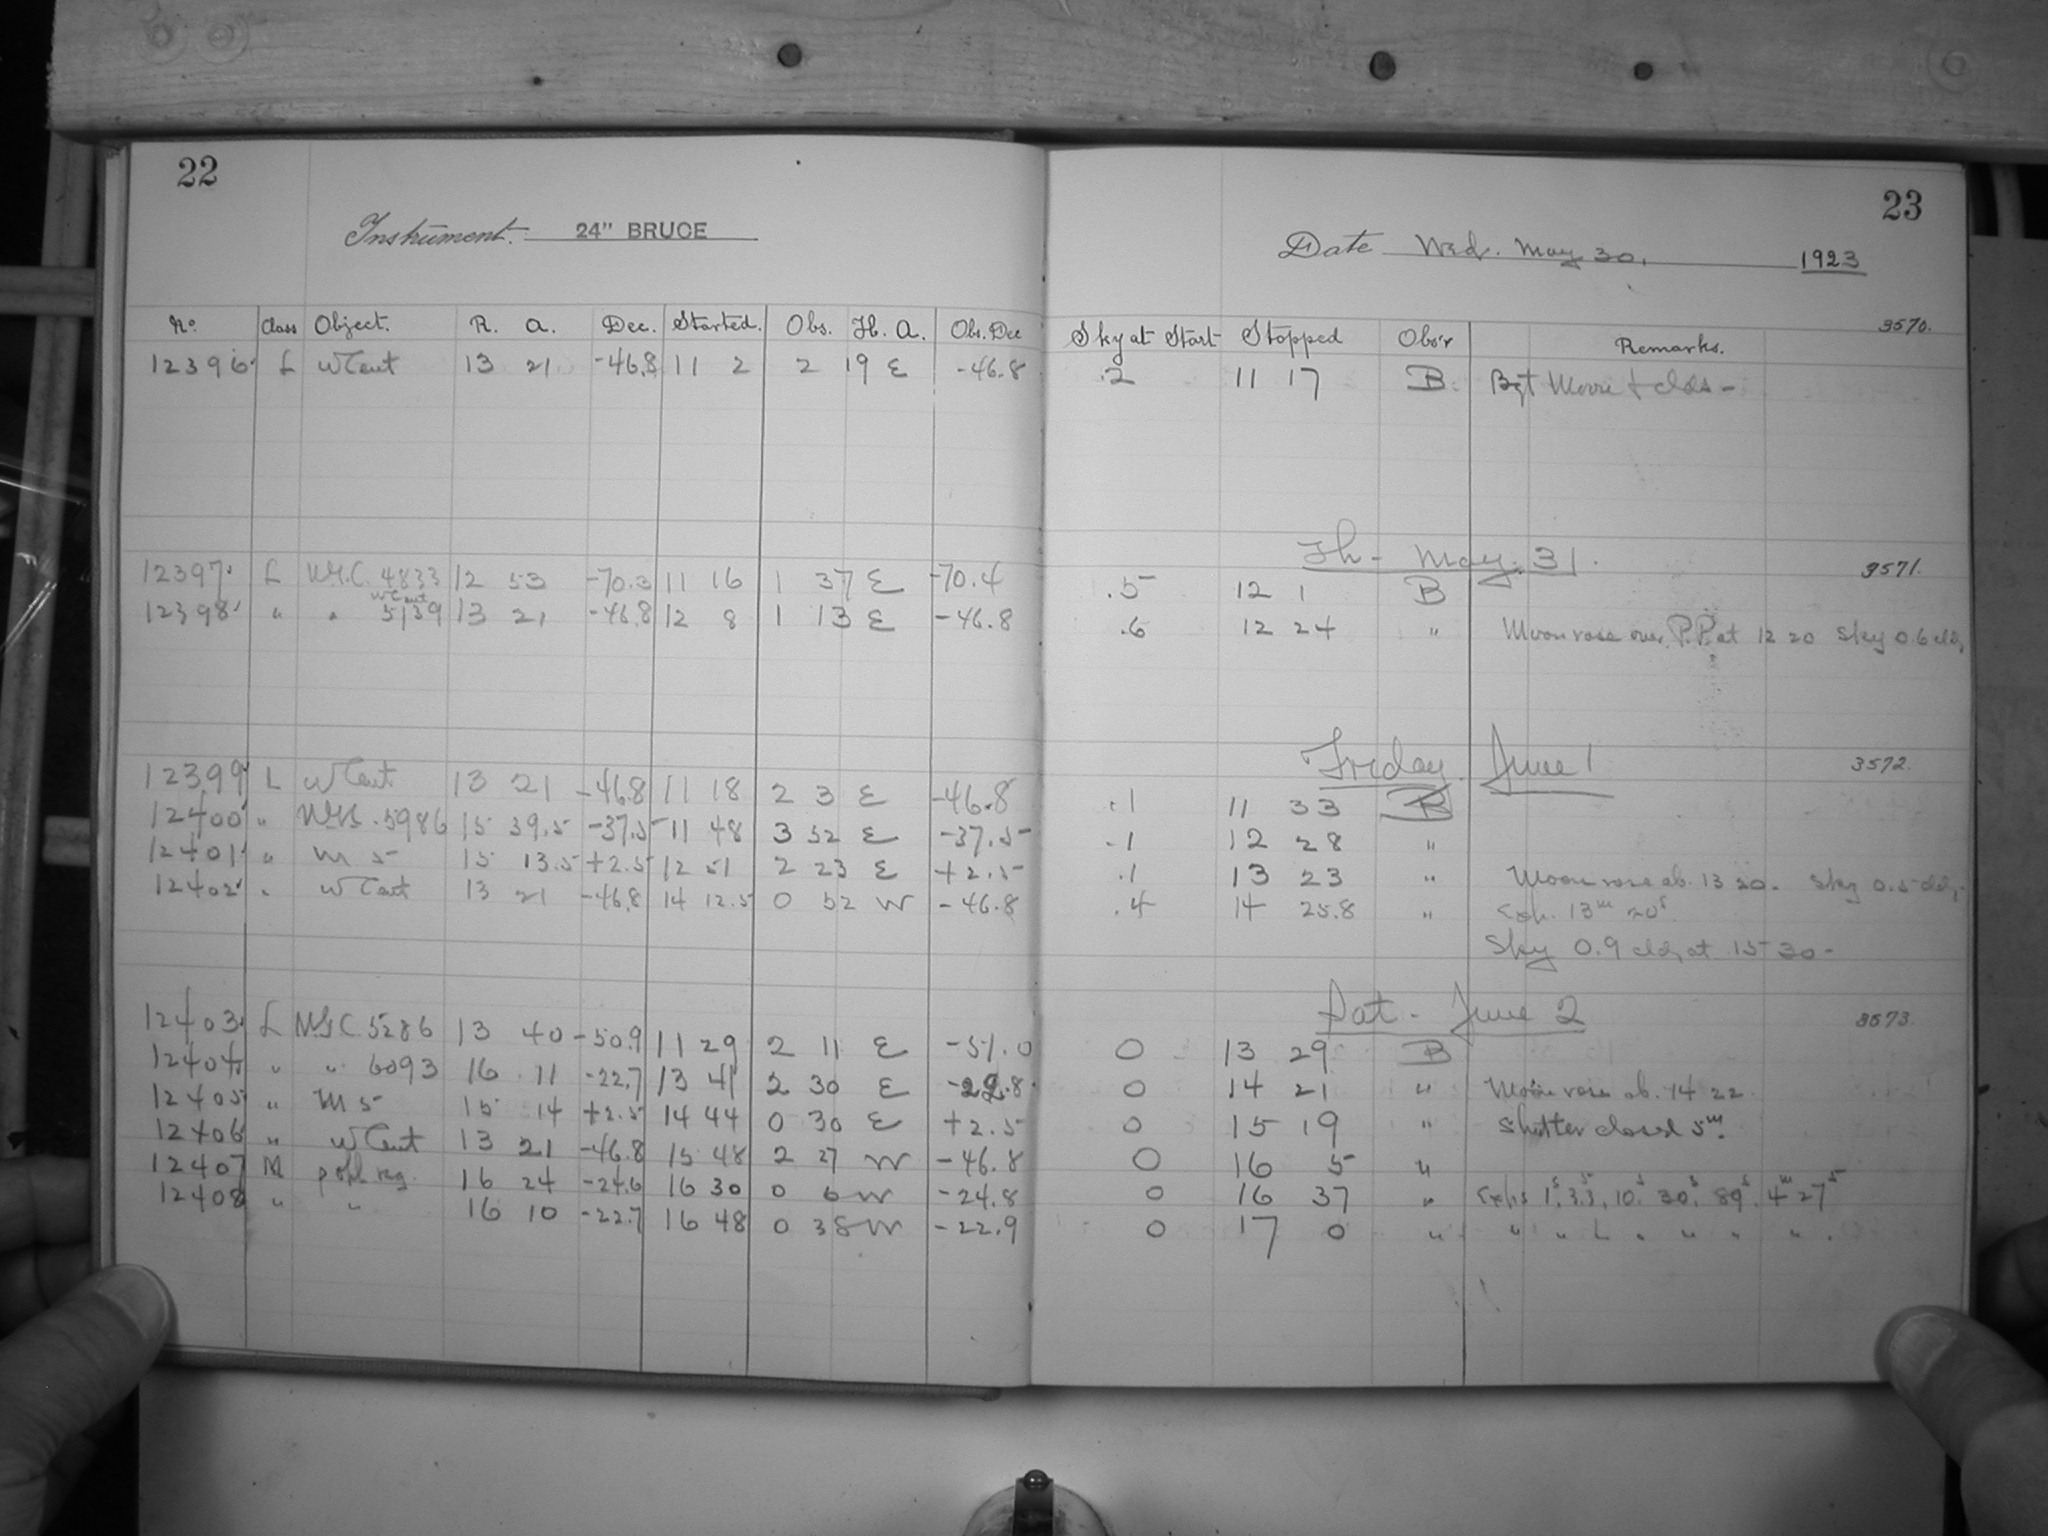 22
23
Instrument. 24" BRUCE
Date Wed. May 30, 1923
No. Class Object. R. A. Dec. Started. Obs. H. A. Obs. Dec Sky at Start Stopped Obs'r Remarks. 3570.
12396 L ωCent 13 21 -46.8 11 2 2 19 E -46.8 .2 11 17 B. Bgt Moon + clds -
Th - May 31. 3571.
12397 L N.G.C. 4833 12 53 -70.3 11 16 1 37 E -70.4 .5 12 1 B
12398 " " ωCent 5139 13 21 -46.8 12 8 1 13 E -46.8 .6 12 24 " Moon rose over P.P. at 12 20 Sky 0.6 cldy
Friday June 1 3572.
12399 L ωCent 13 21 -46.8 11 18 2 3 E -46.8 .1 11 33 B
12400 " 5986 15 39.5 -37.5 11 48 3 52 E -37.5 .1 12 28 "
12401 " M 5 15 13.5 +2.5 12 51 2 23 E +2.5 .1 13 23 " Moon rose ab. 13 20. Sky 0.5 cldy.
12402 " ωCent 13 21 -46.8 14 12.5 0 52 W -46.8 .4 14 25.8 " Exp. 13m 20s.
Sky 0.9 cldy at 15 30 -
Sat - June 2 3573.
12403 L N.G.C. 5286 13 40 -50.9 11 29 2 11 E -51.0 0 13 29 B
12404 " " 6093 16 11 -22.7 13 41 2 30 E -22.8 0 14 21 " Moon rose ab. 14 22
12405 " M 5 15 14 +2.5 14 44 0 30 E +2.5 0 15 19 " Shutter closed 5m.
12406 " ωCent 13 21 -46.8 15 48 2 27 W -46.8 0 16 5 "
12407 M ρ Oph reg. 16 24 -24.6 16 30 0 6 W -24.8 0 16 37 " Exps 1s, 3.3s, 10s, 30s, 89s, 4m 27s
12408 " " 16 10 -22.7 16 48 0 38 W -22.9 0 17 0 " " " " " " "